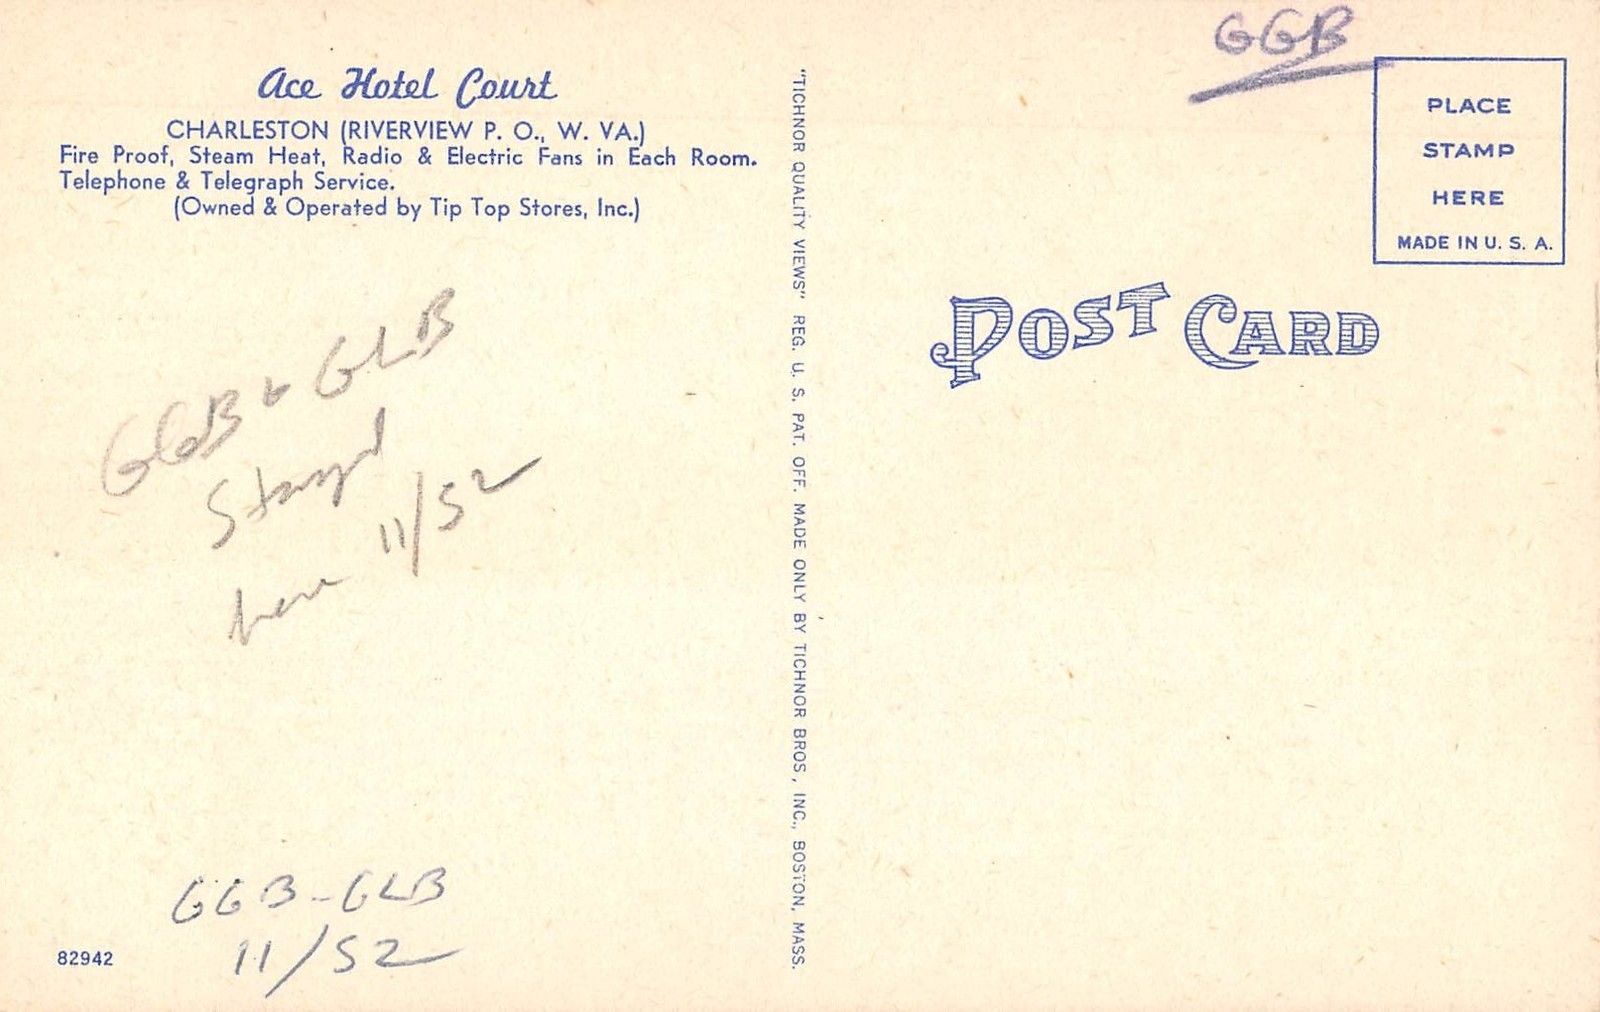 Ace Hotel Court
CHARLESTON (RIVERVIEW P. O., W. VA.)
Fire Proof, Steam Heat, Radio & Electric Fans in Each Room.
Telephone & Telegraph Service.
(Owned & Operated by Tip Top Stores, Inc.)
GGB & GLB
Stayed
here 11/52
GGB-GLB
11/52
82942
"TICHNOR QUALITY VIEWS" REG. U. S. PAT. OFF. MADE ONLY BY TICHNOR BROS., INC., BOSTON, MASS.
GGB
PLACE
STAMP
HERE
MADE IN U. S. A.
POST CARD